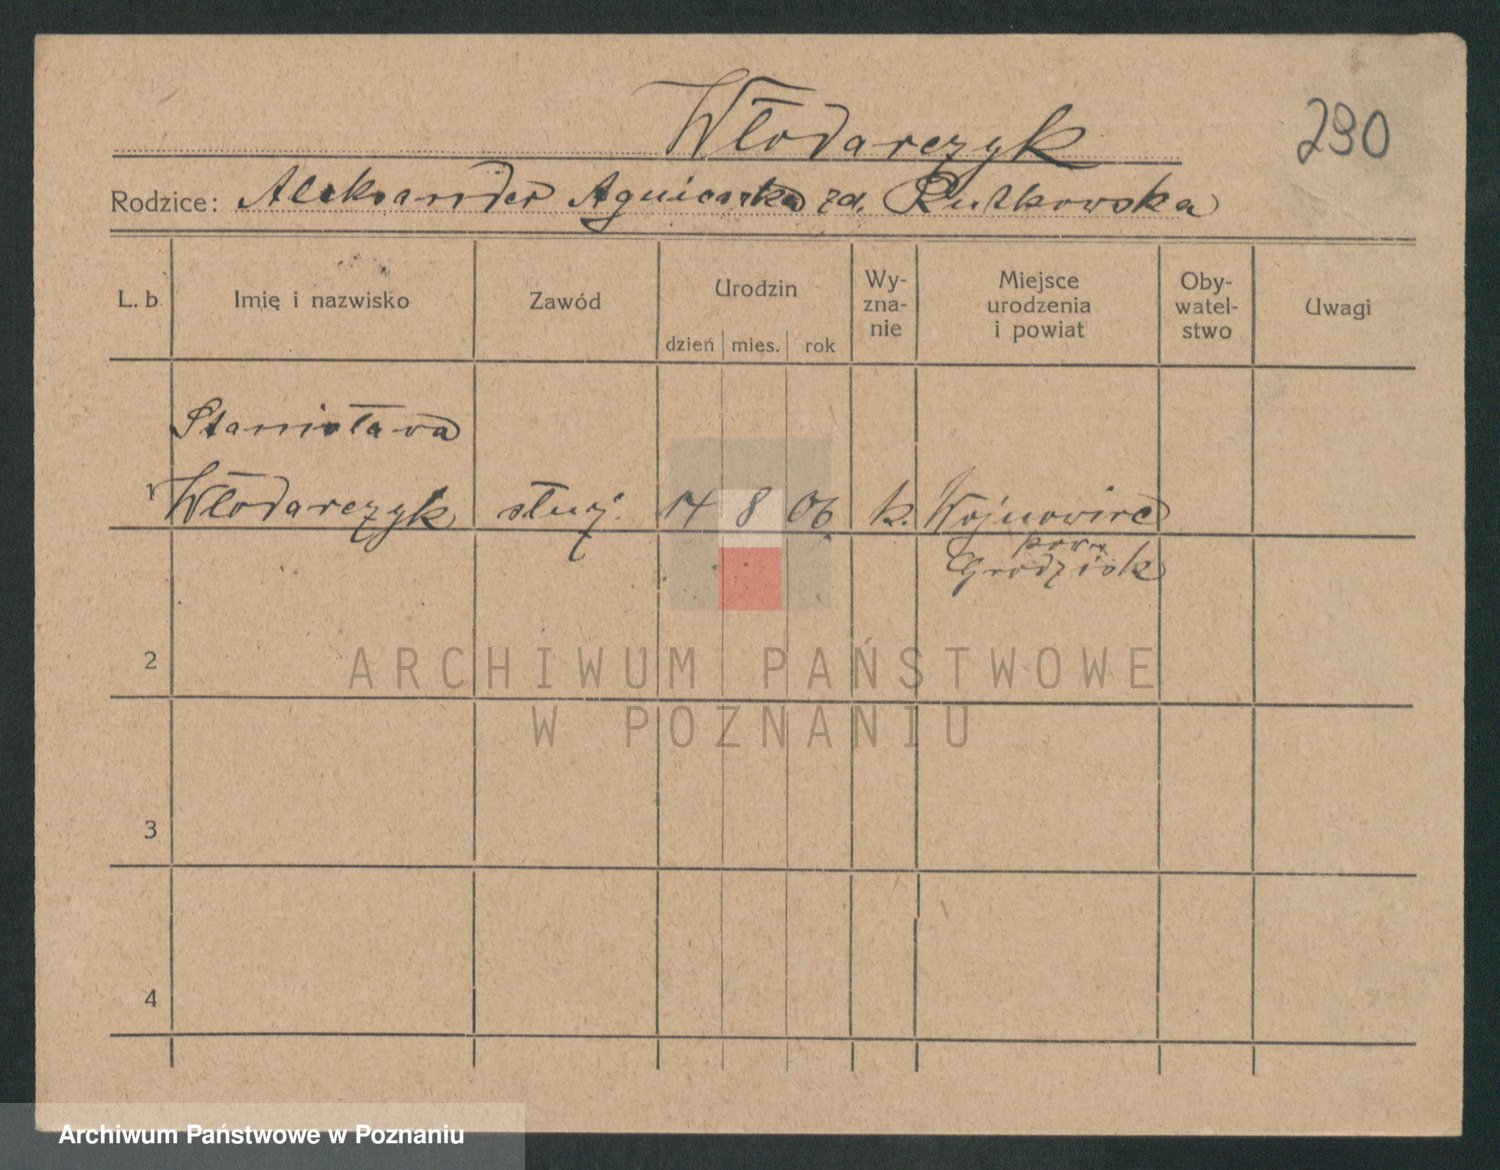 Włodarczyk
290
Rodzice: Aleksander Agnieszka zd. Rutkowska
L. b. Imię i nazwisko Zawód Urodzin dzień mies. rok Wy-zna-nie Miejsce urodzenia i powiat Oby-watel-stwo Uwagi
Stanisława
1 Włodarczyk służ. 14 8 06. k. Wojnowice
pow.
Grodzisk
2
ARCHIWUM PAŃSTWOWE
W POZNANIU
3
4
Archiwum Państwowe w Poznaniu